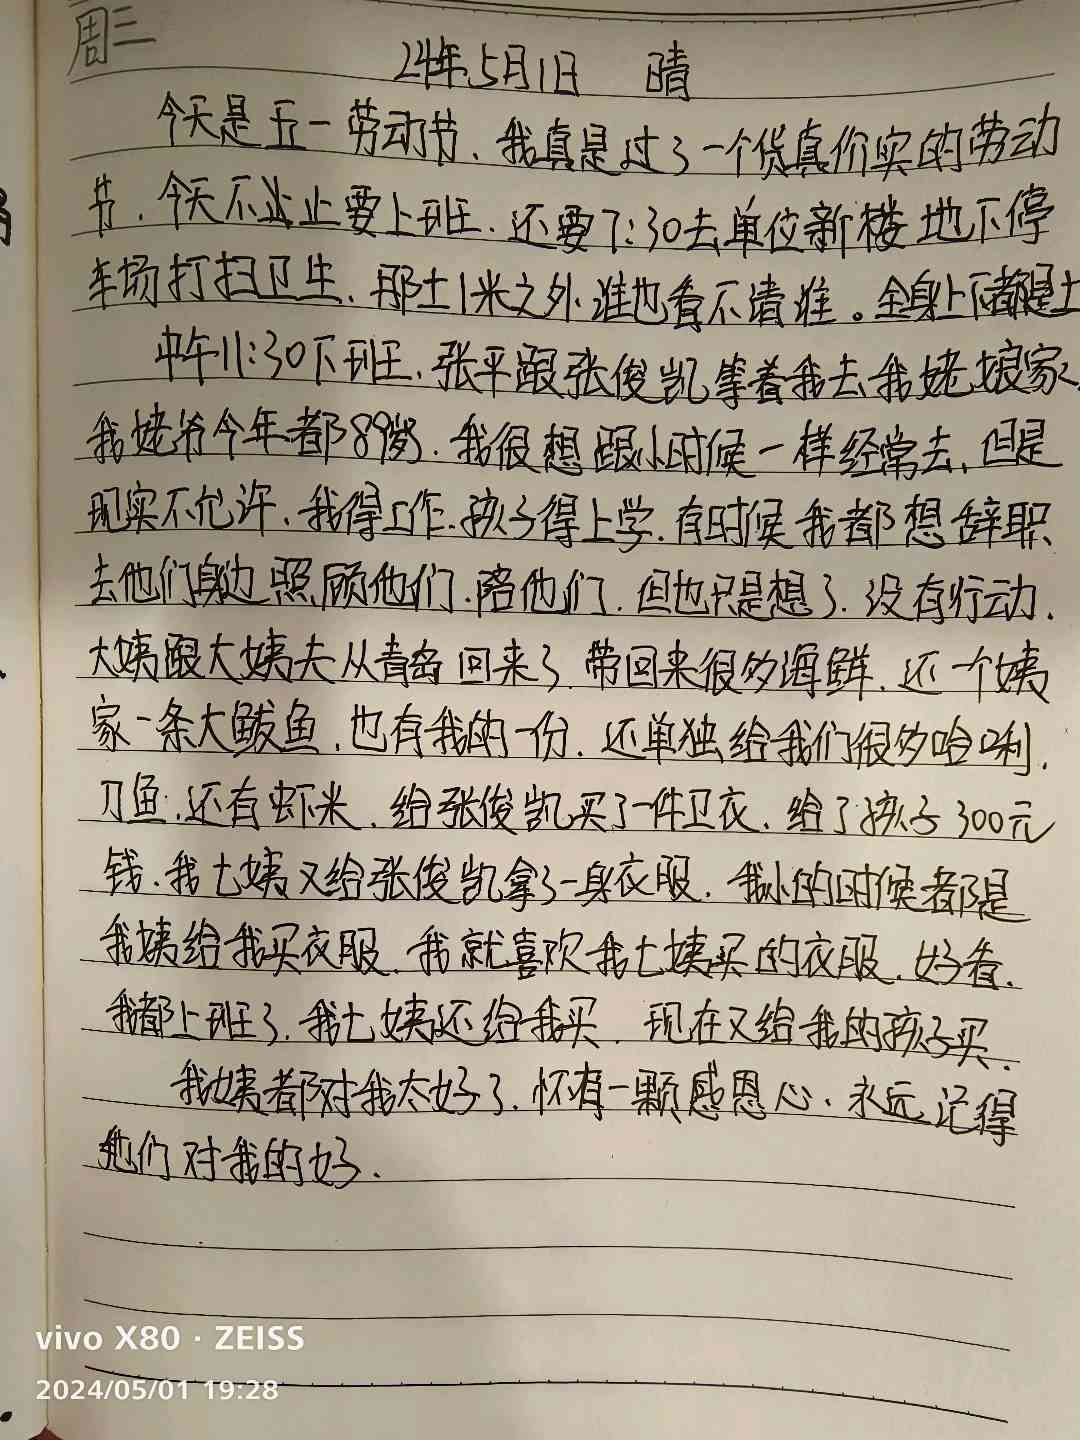 周三
24年5月1日 晴
今天是五一劳动节、我真是过了一个货真价实的劳动
节.今天不止要上班.还要7:30去单位新楼地下停
车场打扫卫生、那土1米之外谁也看不清谁。全身上下都是土
中午11:30下班、张平跟张俊凯等着我去我姥娘家、
我姥爷今年都89岁.我很想跟小时候一样经常去.但是
现实不允许、我得工作.孩子得上学.有时候我都想辞职
去他们身边照顾他们.陪他们.但也只是想了.没有行动.
大姨跟大姨夫从青岛回来了.带回来很多海鲜.还一个姨
家一条大鲅鱼.也有我的一份.还单独给我们很多哈唎.
刀鱼.还有虾米.给张俊凯买了一件卫衣.给了孩子300元
钱.我七姨又给张俊凯拿了一身衣服.我小的时候都是
我姨给我买衣服.我就喜欢我七姨买的衣服.好看.
我都上班了.我七姨还给我买.现在又给我的孩子买.
我姨都对我太好了.怀有一颗感恩心.永远记得
她们对我的好.
vivo X80 · ZEISS
2024/05/01 19:28